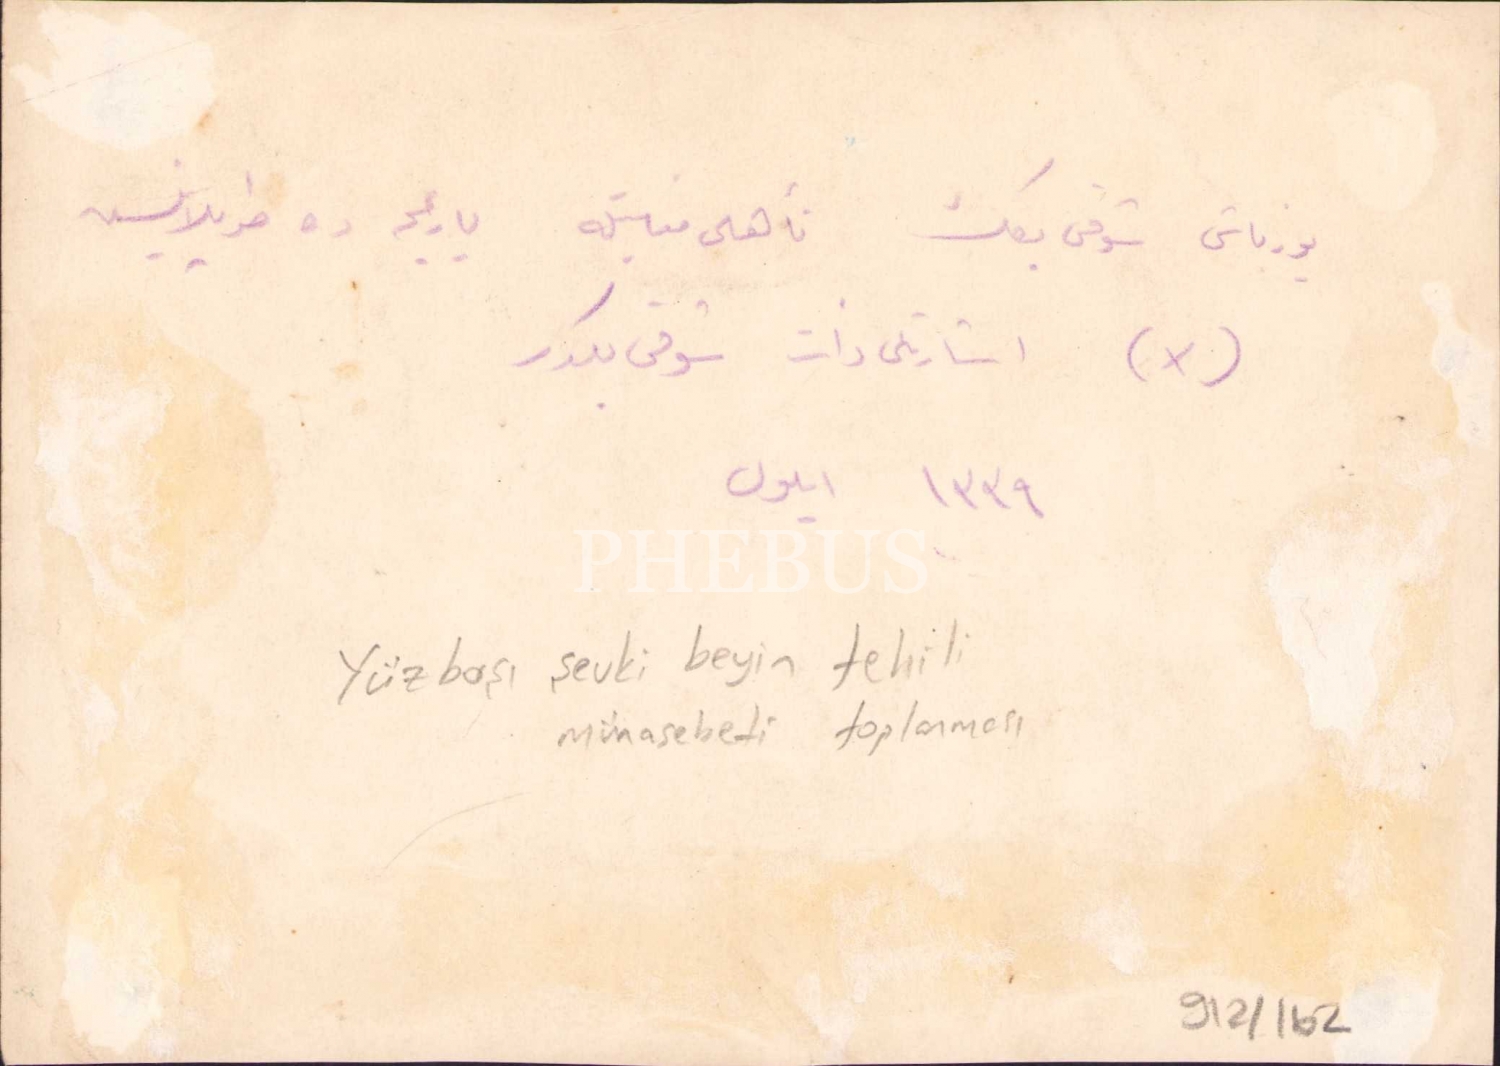 یوزباشی شوقی بكك تأهلی مناسبتیله
(×) اشارتلی ذات شوقی بكدر
١٣٣٩ ایلول
PHEBUS
Yüzbaşı şevki beyin tehili
münasebeti toplanması
912/162